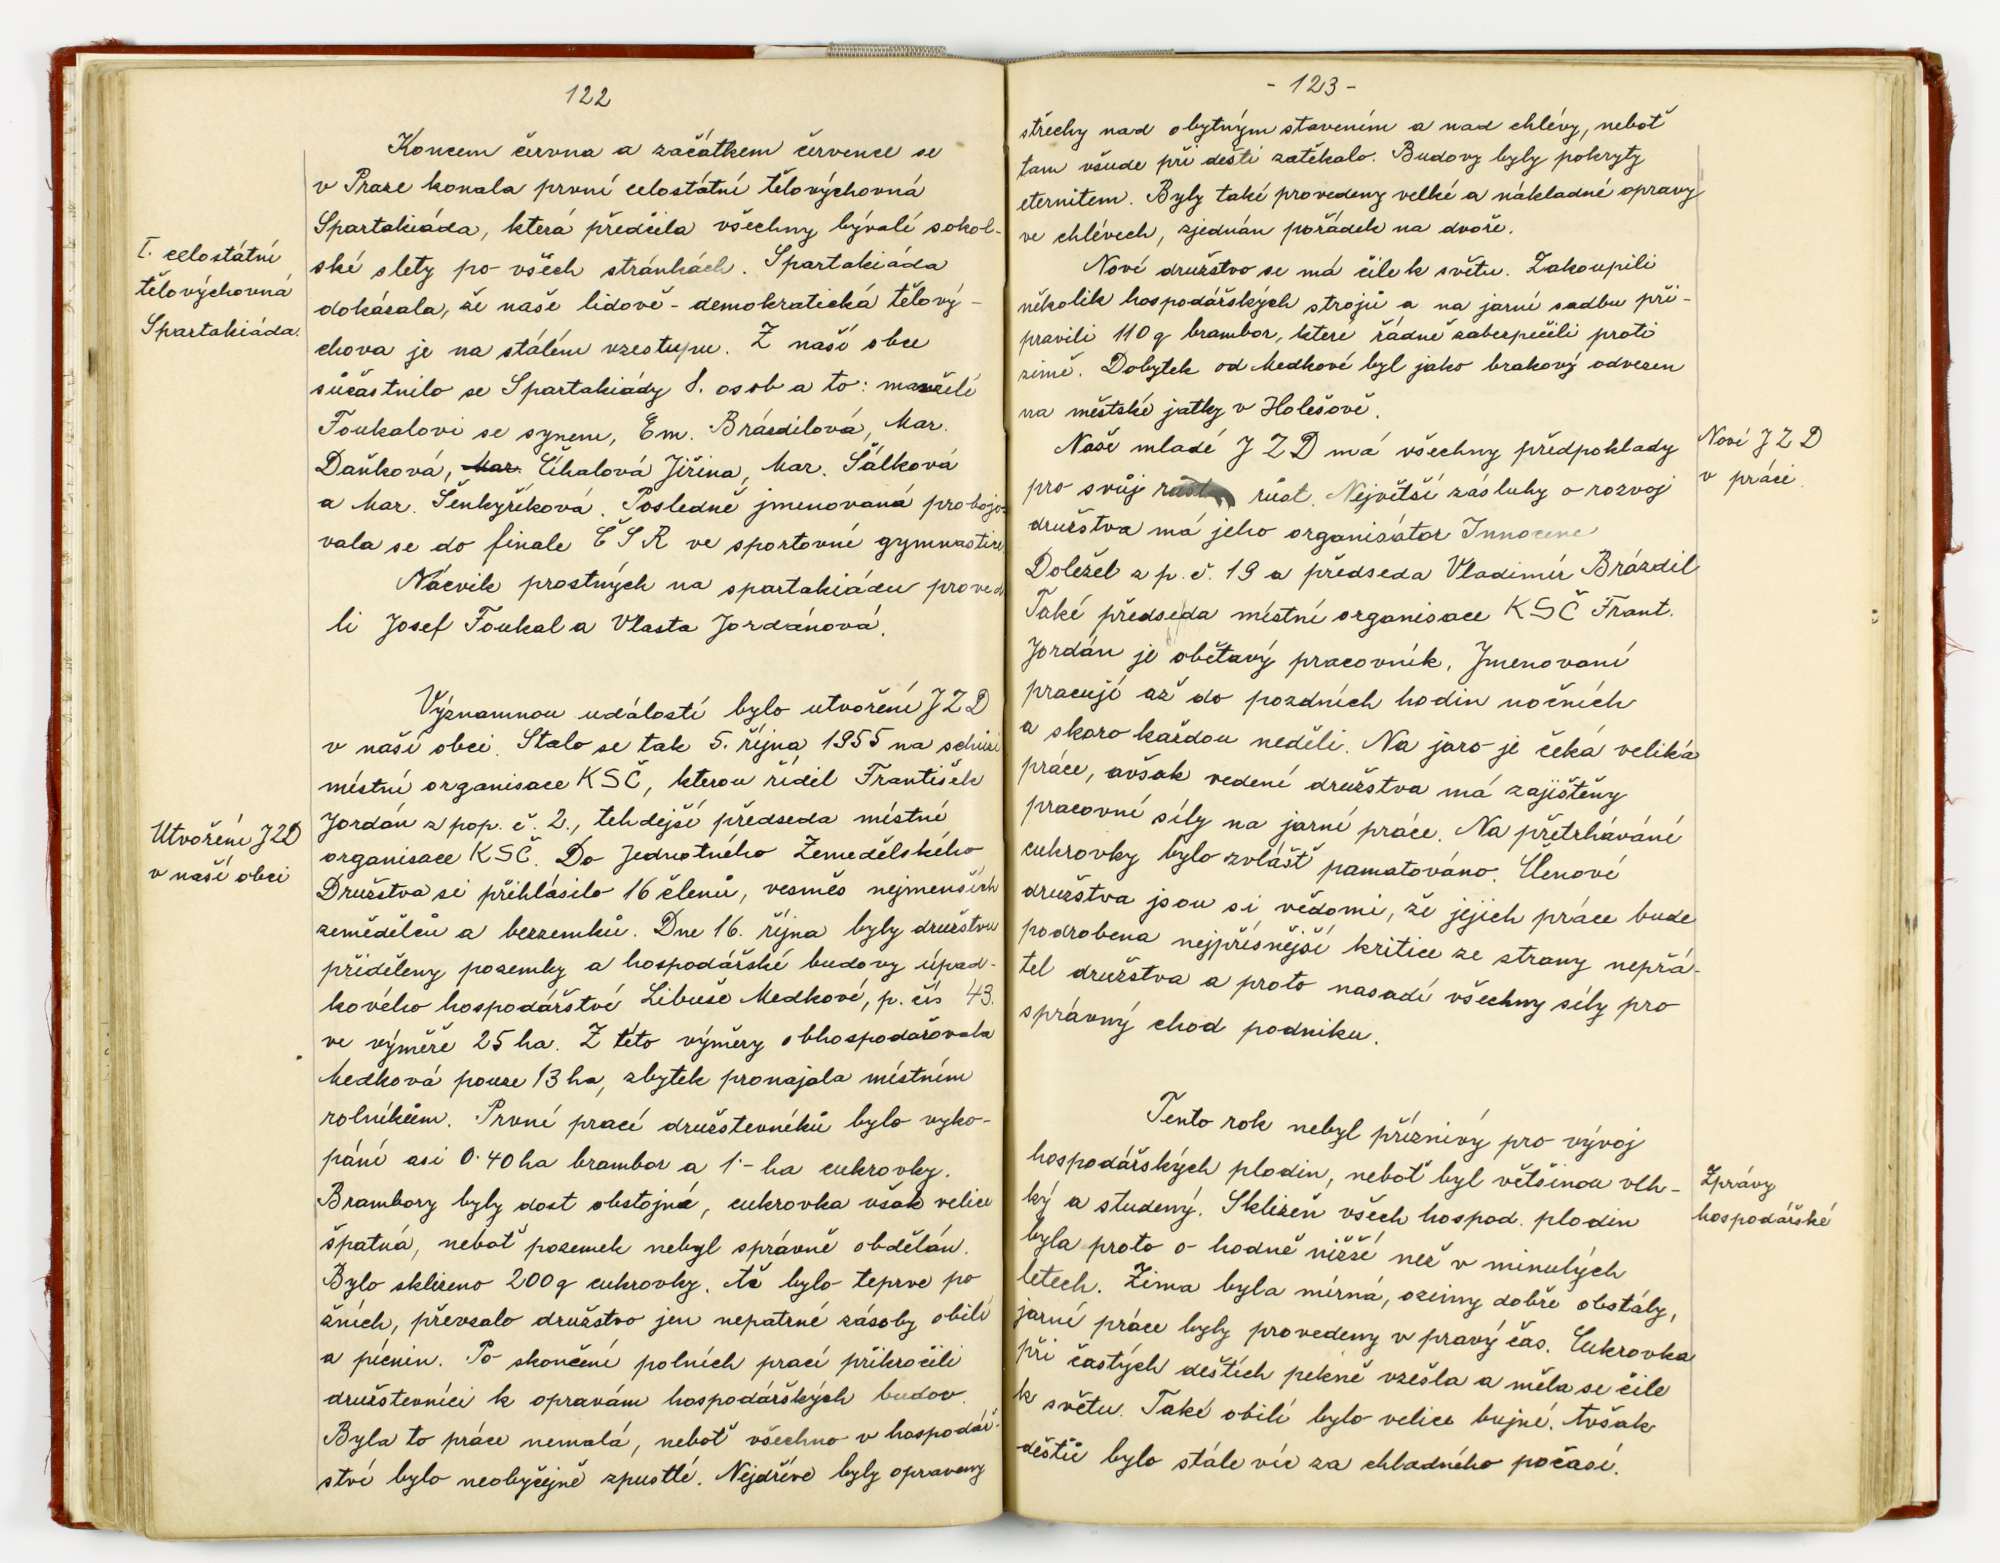 122
Koncem června a začátkem července se
v Praze konala první celostátní tělovýchovná
Spartakiáda, která předčila všechny bývalé sokol-
I. celostátní
tělovýchovná
Spartakiáda.
ské slety po všech stránkách. Spartakiáda
dokázala, že naše lidově-demokratická tělový-
chova je na stálém vzestupu. Z naší obce
súčastnilo se Spartakiády 8. osob a to: manželé
Foukalovi se synem, Em. Brázdilová, Mar.
Daňková, Mar. Číhalová Jiřina, Mar. Šálková
a Mar. Šenkyříková. Posledně jmenovaná probojo-
vala se do finale ČSR ve sportovní gymnastice
Nácvik prostných na spartakiádu proved
li Josef Foukal a Vlasta Jordánová.
Významnou událostí bylo utvoření JZD
v naší obci. Stalo se tak 5. října 1955 na schůzi
místní organisace KSČ, kterou řídil František
Jordán z pop. č. 2., tehdejší předseda místní
Utvoření JZD
v naší obci
organisace KSČ. Do Jednotného Zemědělského
Družstva si přihlásilo 16 členů, vesměs nejmenších
zemědělců a bezzemků. Dne 16. října byly družstvu
přiděleny pozemky a hospodářské budovy úpad-
kového hospodářství Libuše Medkové, p. čís 43.
ve výměře 25 ha. Z této výměry obhospodařovala
Medková pouze 13 ha, zbytek pronajala místním
rolníkům. První prací družstevníků bylo vyko-
pání asi 0.40 ha brambor a 1.- ha cukrovky.
Brambory byly dost obstojné, cukrovka však velice
špatná, neboť pozemek nebyl správně obdělán.
Bylo sklizeno 200 q cukrovky. Až bylo teprve po
žních, převzalo družstvo jen nepatrné zásoby obilí
a pícnin. Po skončení polních prací přikročili
družstevníci k opravám hospodářských budov.
Byla to práce nemalá, neboť všechno v hospodář-
ství bylo neobyčejně zpustlé. Nejdříve byly opraveny
- 123 -
střechy nad obytným stavením a nad chlévy, neboť
tam všude při dešti zatékalo. Budovy byly pokryty
eternitem. Byly také provedeny velké a nákladné opravy
ve chlévech, zjednán pořádek na dvoře.
Nové družstvo se má čile k světu. Zakoupili
několik hospodářských strojů a na jarní sadbu při-
pravili 110 q brambor, které řádně zabezpečili proti
zimě. Dobytek od Medkové byl jako brakový odvezen
na městské jatky v Holešově.
Naše mladé JZD má všechny předpoklady
Nové JZD
v práci.
pro svůj růst. Největší zásluhy o rozvoj
družstva má jeho organisátor Innocenc
Doležel z p. č. 19 a předseda Vladimír Brázdil
Také předseda místní organisace KSČ Frant.
Jordán je obětavý pracovník. Jmenovaní
pracují až do pozdních hodin nočních
a skoro každou neděli. Na jaro je čeká veliká
práce, avšak vedení družstva má zajištěny
pracovní síly na jarní práce. Na přetrhávání
cukrovky bylo zvlášť pamatováno. Členové
družstva jsou si vědomi, že jejich práce bude
podrobena nejpřísnější kritice ze strany nepřá-
tel družstva a proto nasadí všechny síly pro
správný chod podniku.
Tento rok nebyl příznivý pro vývoj
hospodářských plodin, neboť byl většinou vlh-
Zprávy
hospodářské
ký a studený. Sklizeň všech hospod. plodin
byla proto o hodně nižší než v minulých
letech. Zima byla mírná, ozimy dobře obstály,
jarní práce byly provedeny v pravý čas. Cukrovka
při častých deštích pěkně vzešla a měla se čile
k světu. Také obilí bylo velice bujné. Avšak
dešťů bylo stále víc za chladného počasí.